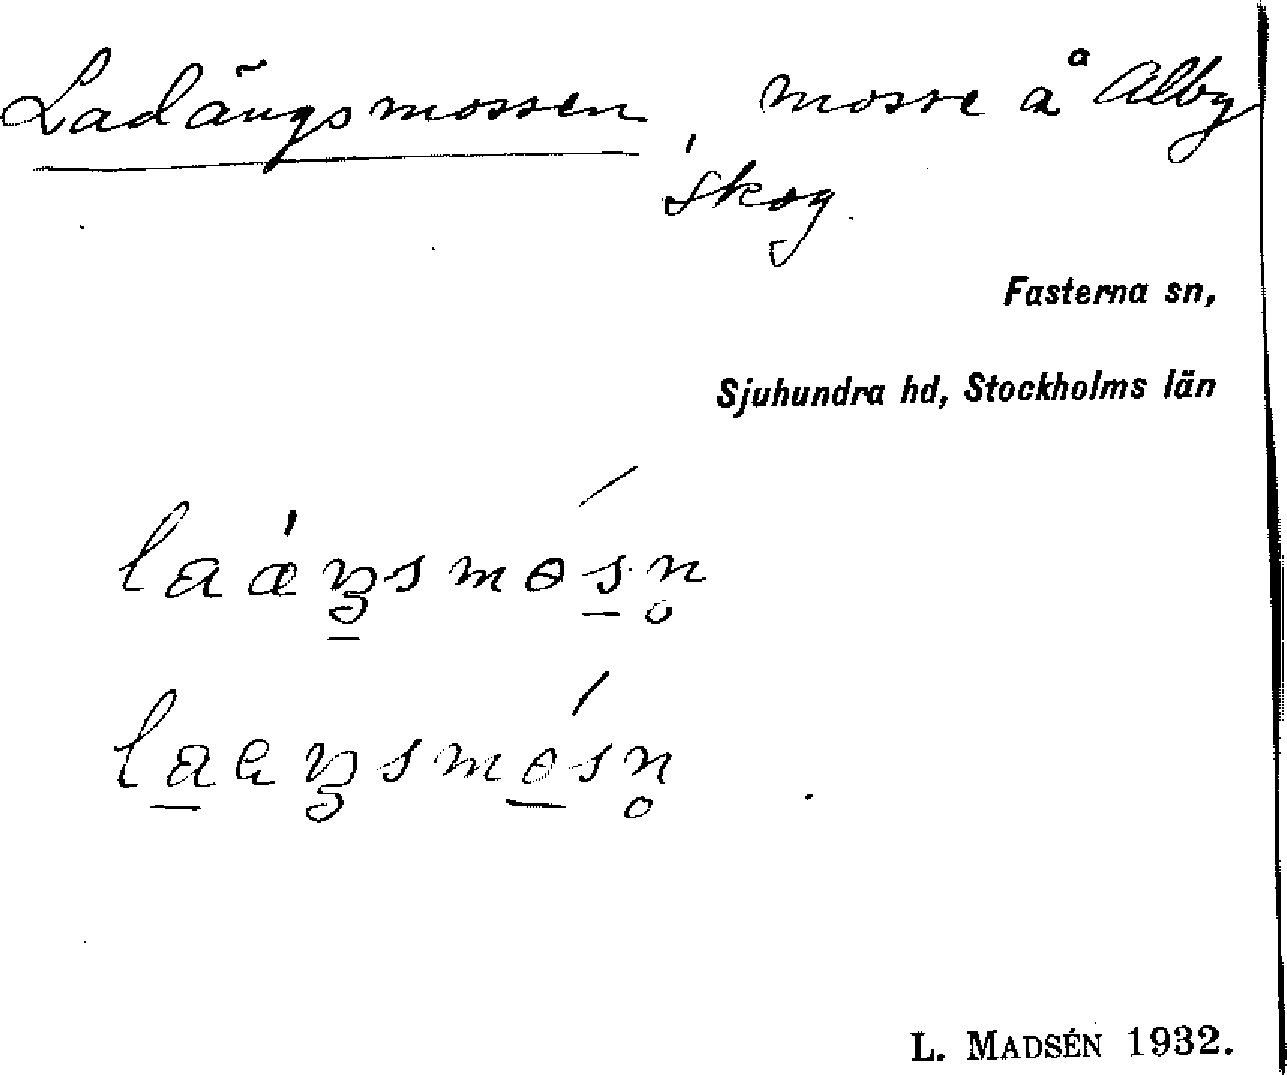 Ladängsmossen, mosse å Alby
skog.
Fasterna sn,
Sjuhundra hd, Stockholms län
L. MADSÉN 1932.